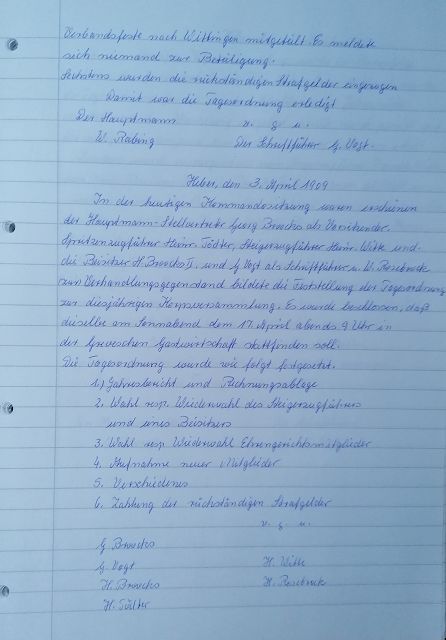 Verbandsfeste nach Wittingen mitgeteilt. Es meldete
sich niemand zur Beteiligung.
Sechstens wurden die rückständigen Strafgelder eingezogen
Damit war die Tagesordnung erledigt
Der Hauptmann v. g. u.
W. Rabing Der Schriftführer G. Vogt.
Heber, den 3. April 1909
In der heutigen Kommandositzung waren erschienen
der Hauptmann-Stellvertreter Georg Broocks als Vorsitzender,
Spritzenzugführer Heinr. Tödter, Steigerzugführer Heinr. Witte und
die Beisitzer H. Broocks II. und G. Vogt als Schriftführer u. W.
zum Verhandlungsgegenstand bildete die Feststellung der Tagesordnung
zur diesjährigen Korpsversammlung. Es wurde beschlossen, daß
dieselbe am Sonnabend dem 17. April abends 9 Uhr in
der Gastwirtschaft stattfinden soll.
Die Tagesordnung wurde wie folgt festgesetzt.
1.) Jahresbericht und Rechnungsablage
2. Wahl resp. Wiederwahl des Steigerzugführers
und eines Beisitzers
3. Wahl resp. Wiederwahl Ehrengerichtsmitglieder
4. Aufnahme neuer Mitglieder
5. Verschiedenes
6. Zahlung der rückständigen Strafgelder
v. g. u.
G Broocks
G. Vogt H. Witte
H. Broocks H.
H. Tödter